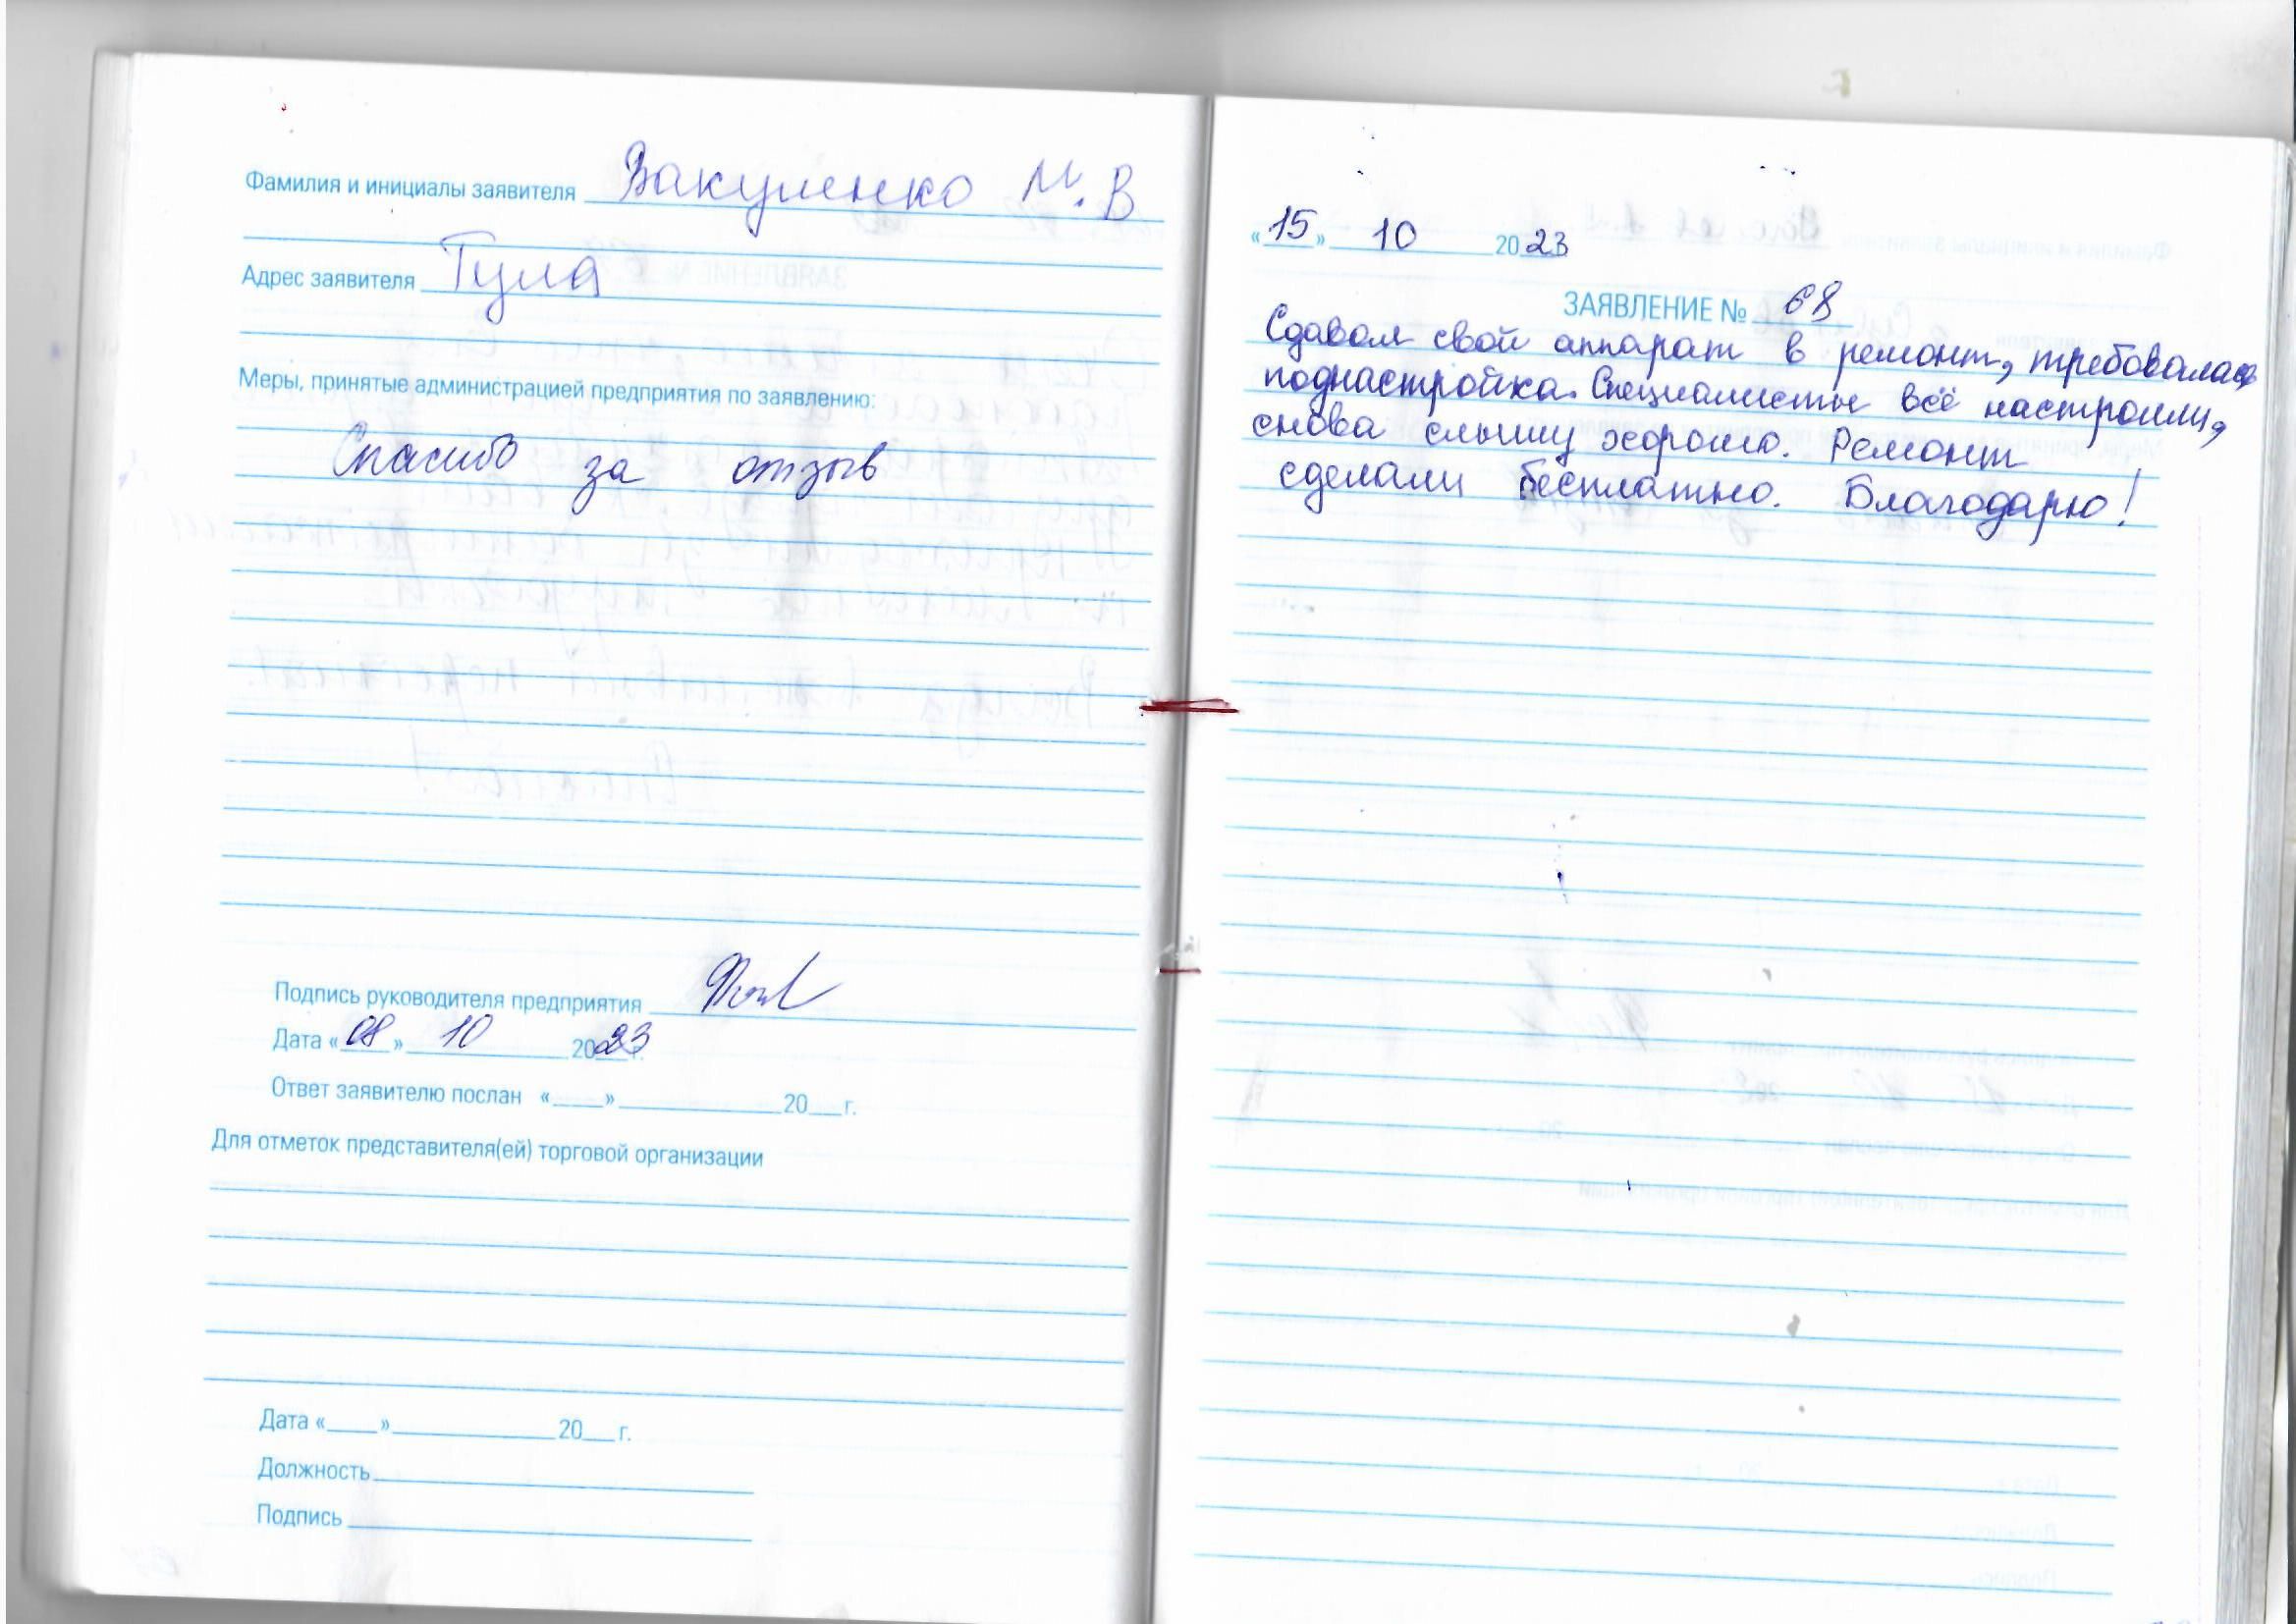 Фамилия и инициалы заявителя Вакуленко М.В
Адрес заявителя Тула
Меры, принятые администрацией предприятия по заявлению:
Спасибо за отзыв
Подпись руководителя предприятия
Дата «08» 10 2023 г.
Ответ заявителю послан «____»____________20___г.
Для отметок представителя(ей) торговой организации
Дата «____»____________20___г.
Должность
Подпись
«15» 10 2023
ЗАЯВЛЕНИЕ № 68
Сдавал свой аппарат в ремонт, требовалась
поднастройка. Специалисты всё настроили,
снова слышу хорошо. Ремонт
сделали бесплатно. Благодарю!